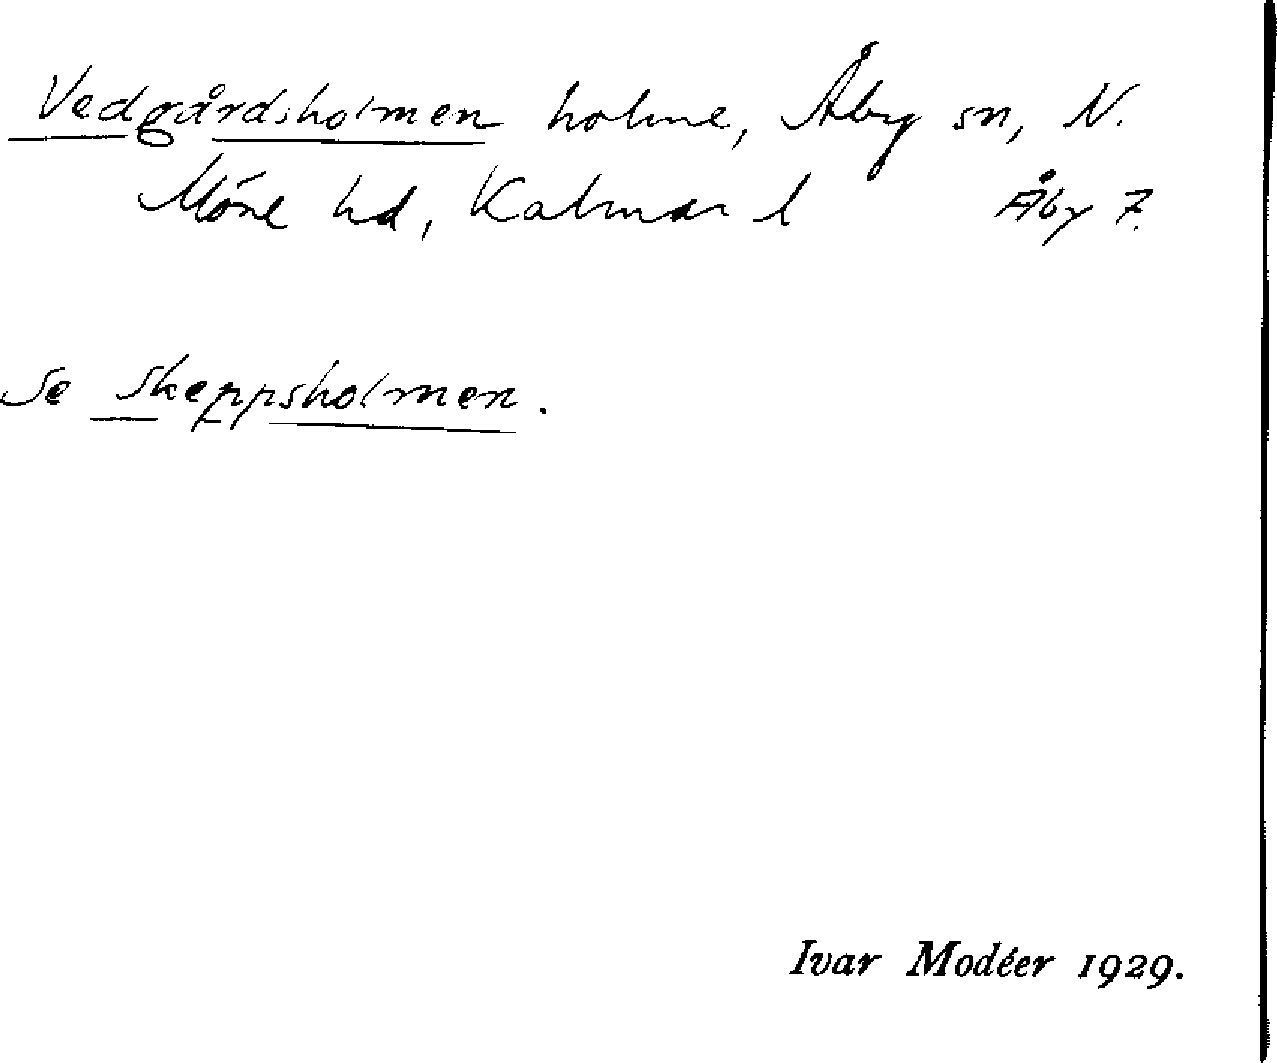 Vedgårdsholmen holme, Åby sn, N.
Möre hd, Kalmar l Åby 7.
Se Skeppsholmen.
Ivar Modéer 1929.